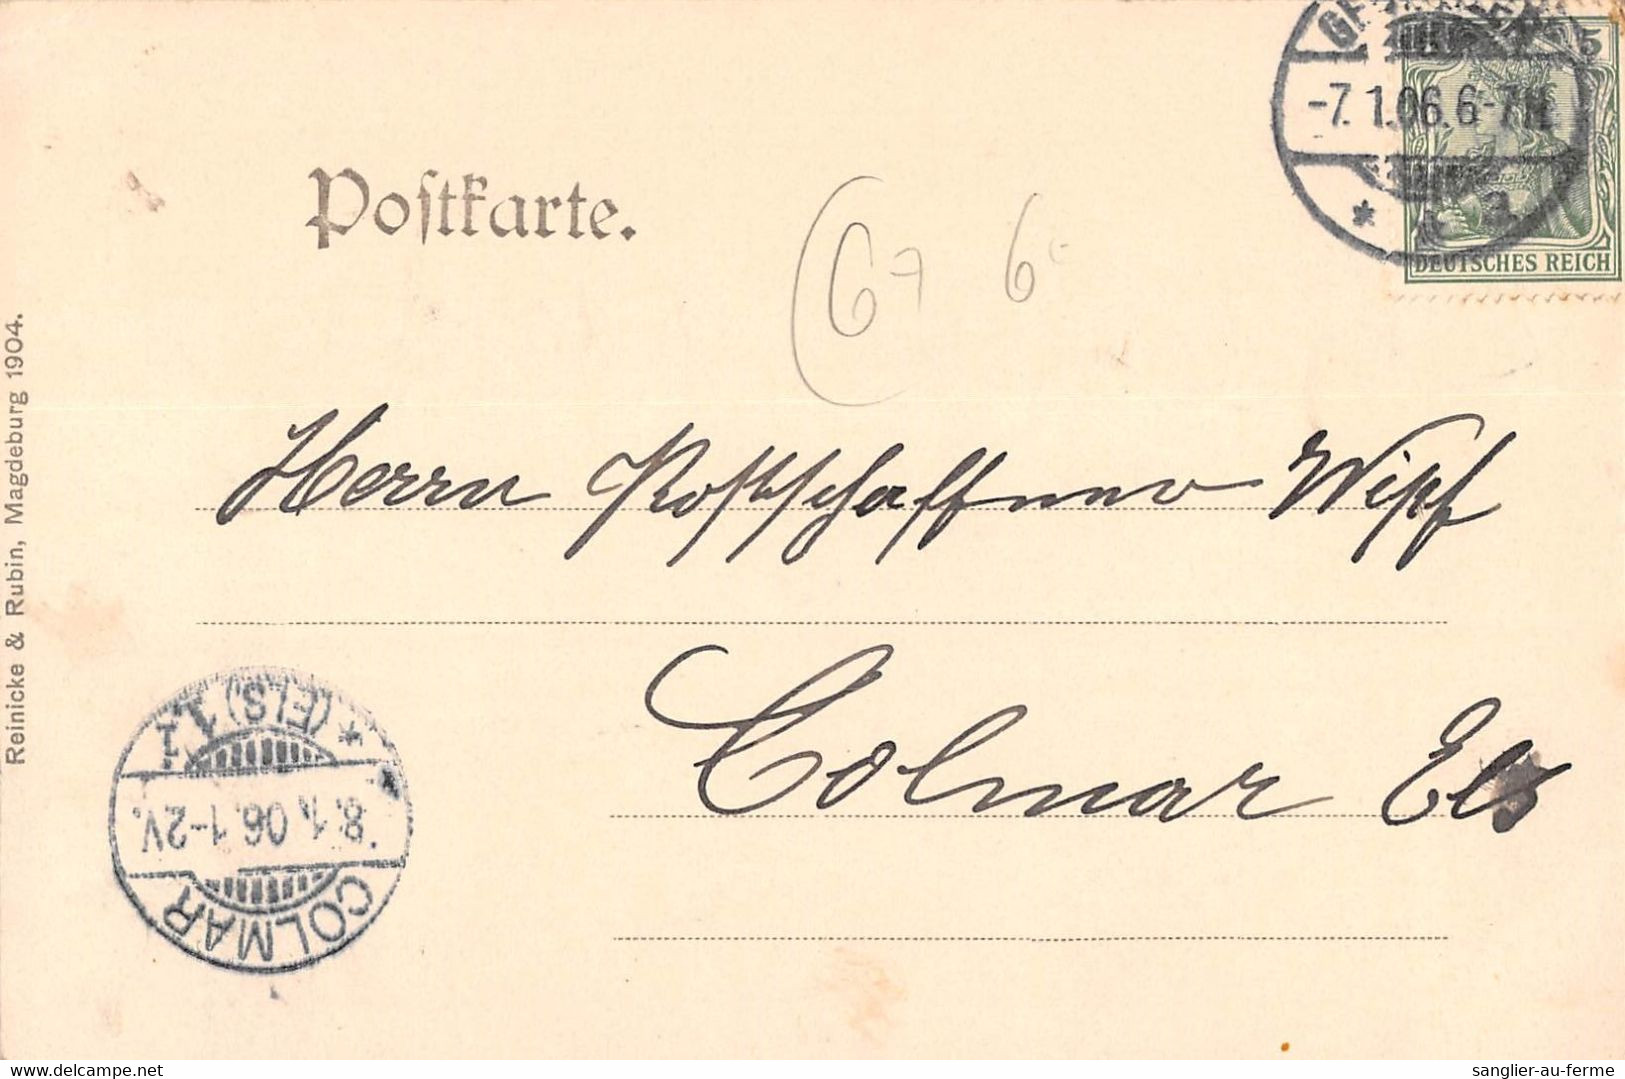 5
-7. 1.06.6-7N.
* a.
DEUTSCHES REICH
Postkarte.
(67 6
Herrn Postschaffner Wipf
Colmar Els
Reinicke & Rubin, Magdeburg 1904.
COLMAR
8.1.06.1-2V.
* (ELS) 1.
sanglier-au-ferme
www.delcampe.net